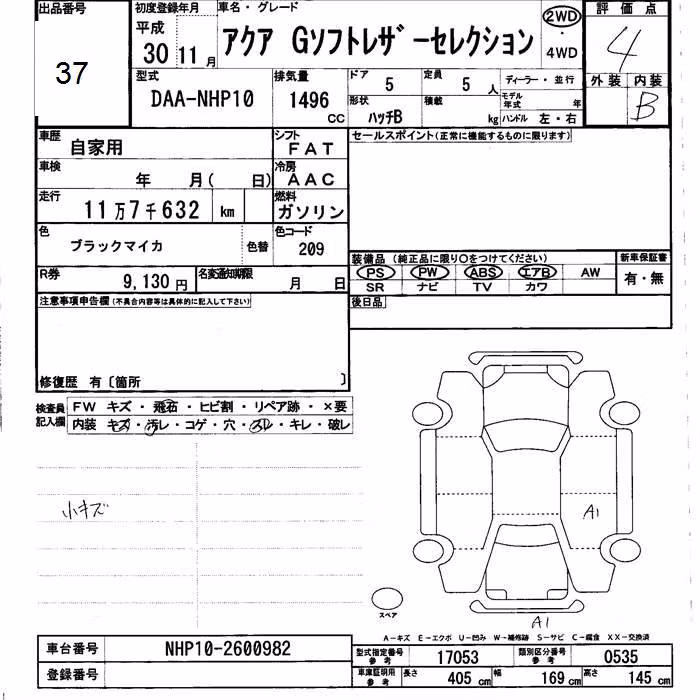 出品番号
37
初度登録年月
平成
30 11月
車名・グレード
アクア Gソフトレザーセレクション
2WD
・
4WD
評価点
4
外装 内装
B
型式
DAA-NHP10
排気量
1496
CC
ドア
5
定員
5人
形状
ハッチB
積載
kg
ディーラー・並行
モデル年式 年
ハンドル 左・右
車歴
自家用
シフト
FAT
セールスポイント(正常に機能するものに限ります)
車検
年 月( 日)
冷房
AAC
走行
11万7千632 km
燃料
ガソリン
色
ブラックマイカ
色替
色コード
209
装備品 (純正品に限り○をつけてください)
新車保証書
PS PW ABS エアB AW
有・無
SR ナビ TV カワ
R券
9,130円
名変通知期限
月 日
後日品
注意事項申告欄(不具合内容等は具体的に記入して下さい)
修復歴 有〔箇所 〕
検査員記入欄
FW キズ・飛石・ヒビ割・リペア跡・×要
内装 キズ・汚レ・コゲ・穴・スレ・キレ・破レ
小キズ
A1
スペア
A1
A-キズ E-エクボ U-凹み W-補修跡 S-サビ C-腐食 XX-交換済
車台番号
NHP10-2600982
登録番号
型式指定番号
参考
17053
類別区分番号
参考
0535
車庫証明用
参考
長さ 405 cm 幅 169 cm 高さ 145 cm